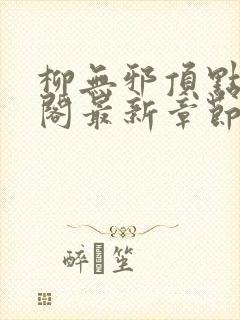 柳無邪頂點
閣最新章節
醉 笙